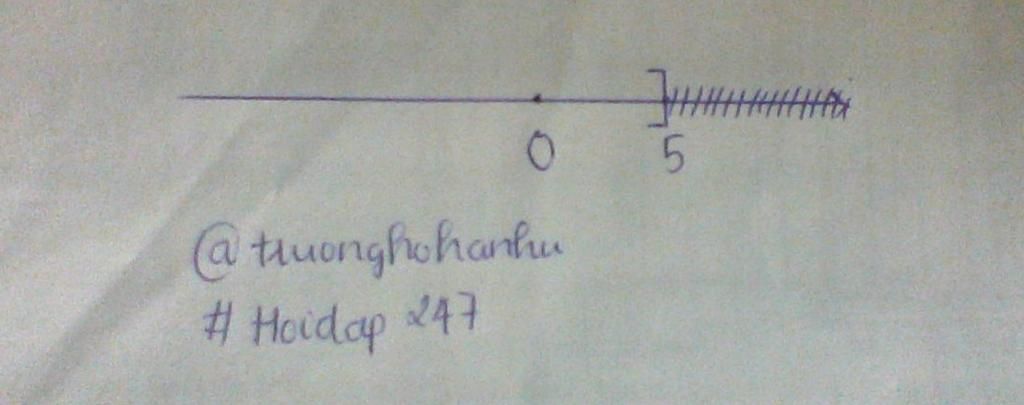 0 5
@truonghohanhu
# Hoidap 247